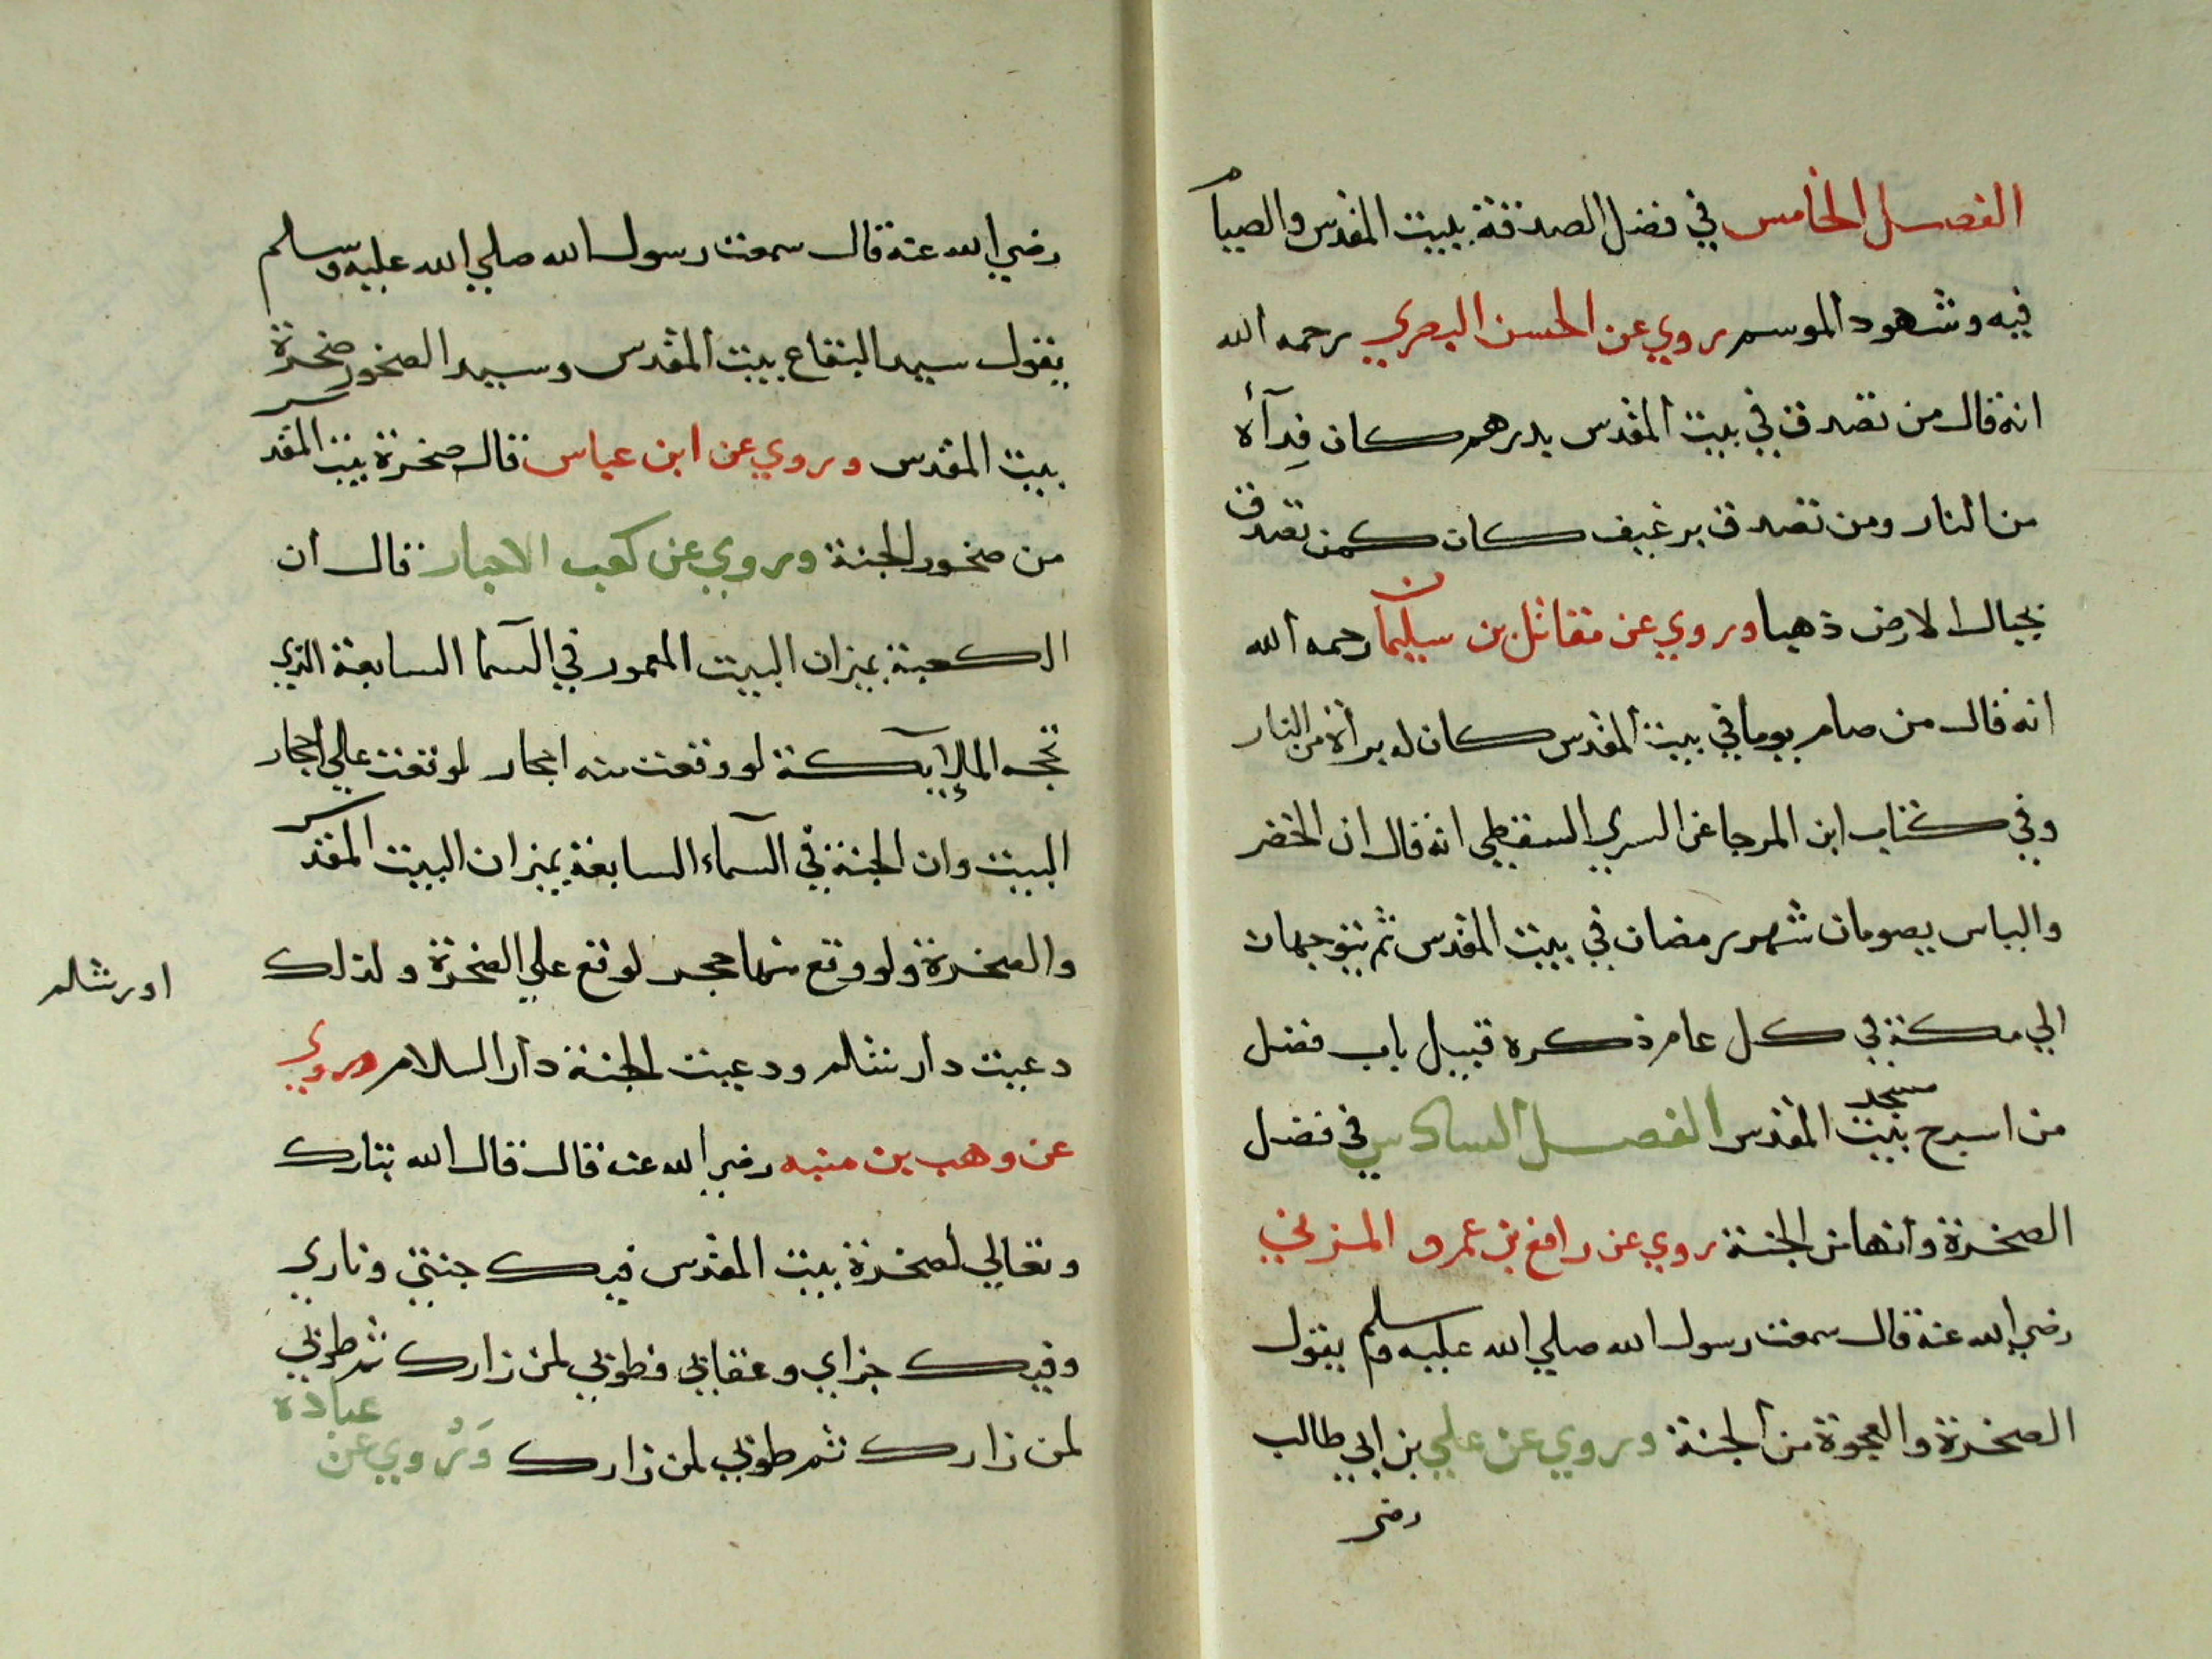 الفصل الخامس في فضل الصدقة ببيت المقدس والصيام
فيه وشهود الموسم روي عن الحسن البصري رحمه الله
انه قال من تصدق في بيت المقدس بدرهم كان فِدآأه
من النار ومن تصدق برغيف كان كمن تصدق
بجبال الارض ذهبا وروي عن مقاتل بن سليمان رحمه الله
انه قال من صام يوما في بيت المقدس كان له برأة من النار
وفي كتاب ابن المرجا عن السري السقطي انه قال ان الخضر
والياس يصومان شهر رمضان في بيت المقدس ثم يتوجهان
الي مكة في كل عام ذكره قبيل باب فضل
من اسرج مسجد بيت المقدس الفصل السادس في فضل
الصخرة وانها من الجنة روي عن رافع بن عمرو المزني
رضي الله عنه قال سمعت رسول الله صلي الله عليه وسلم يقول
الصخرة والعجوة من الجنة وروي عن علي بن ابي طالب
رضي
رضي الله عنه قال سمعت رسول الله صلي الله عليه وسلم
يقول سيد البقاع بيت المقدس وسيد الصخور صخرة
بيت المقدس وروي عن ابن عباس قال صخرة بيت المقدس
من صخور الجنة وروي عن كعب الاحبار قال ان
الكعبة بميزان البيت المعمور في السمآ السابعة الذي
تحجه الملإيكة لو وقعت منه احجار لوقعت علي احجار
البيت وان الجنة في السمآء السابعة بميزان البيت المقدس
والصخرة ولو وقع منها حجر لوقع علي الصخرة ولذلك
اورشلم
دعيت دار شلم ودعيت الجنة دار السلام وروي
عن وهب بن منبه رضي الله عنه قال قال الله تبارك
وتعالي لصخرة بيت المقدس فيك جنتي وناري
وفيك جزاي وعقابي فطوبي لمن زارك ثم طوبي
لمن زارك ثم طوبي لمن زارك وَرُوي عن عبادة